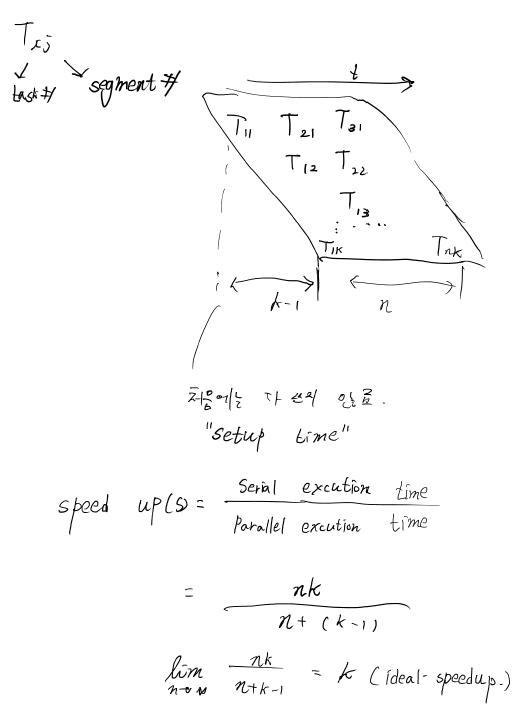 T_ij
task# segment#
t
T_11 T_21 T_31
T_12 T_22
T_13
: ....
T_1k T_nk
k-1 n
처음에는
"setup time"
speed up(s) = Serial excution time / Parallel excution time
= nk / n + (k-1)
lim n→∞ nk / n+k-1 = k (ideal-speedup.)